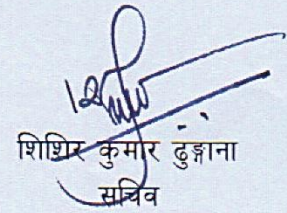 शिशिर कुमार ढुङ्गाना
सचिव